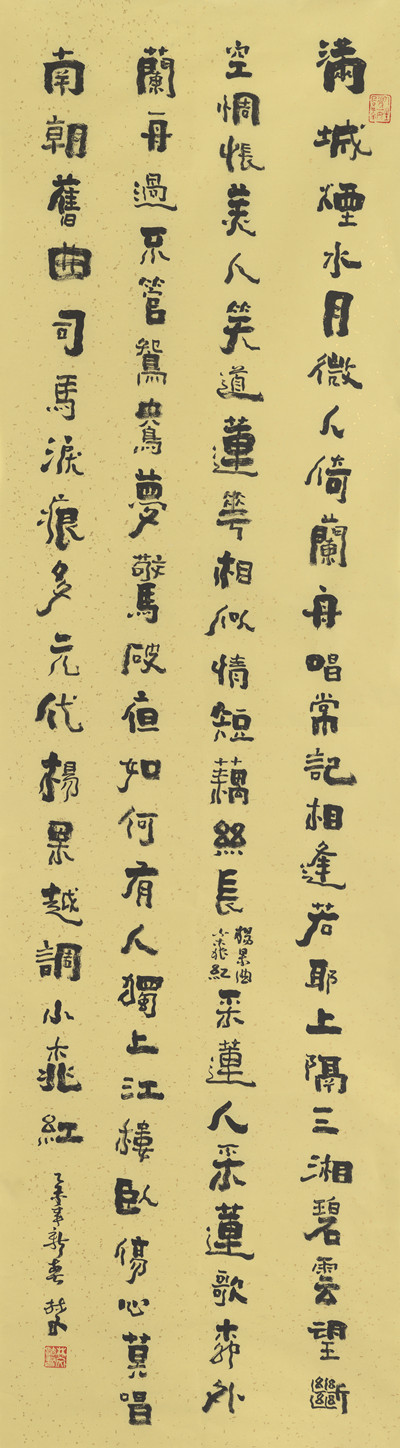 滿城煙水月微人倚蘭舟唱常記相逢若耶上隔三湘碧雲望斷
空惆悵美人笑道蓮華相似情短藕絲長
楊果曲
小桃紅
采蓮人采蓮歌柳外
蘭舟過不管鴛鴦夢驚破夜如何有人獨上江樓臥傷心莫唱
南朝舊曲司馬淚痕多元代楊果越調小桃紅
年新春